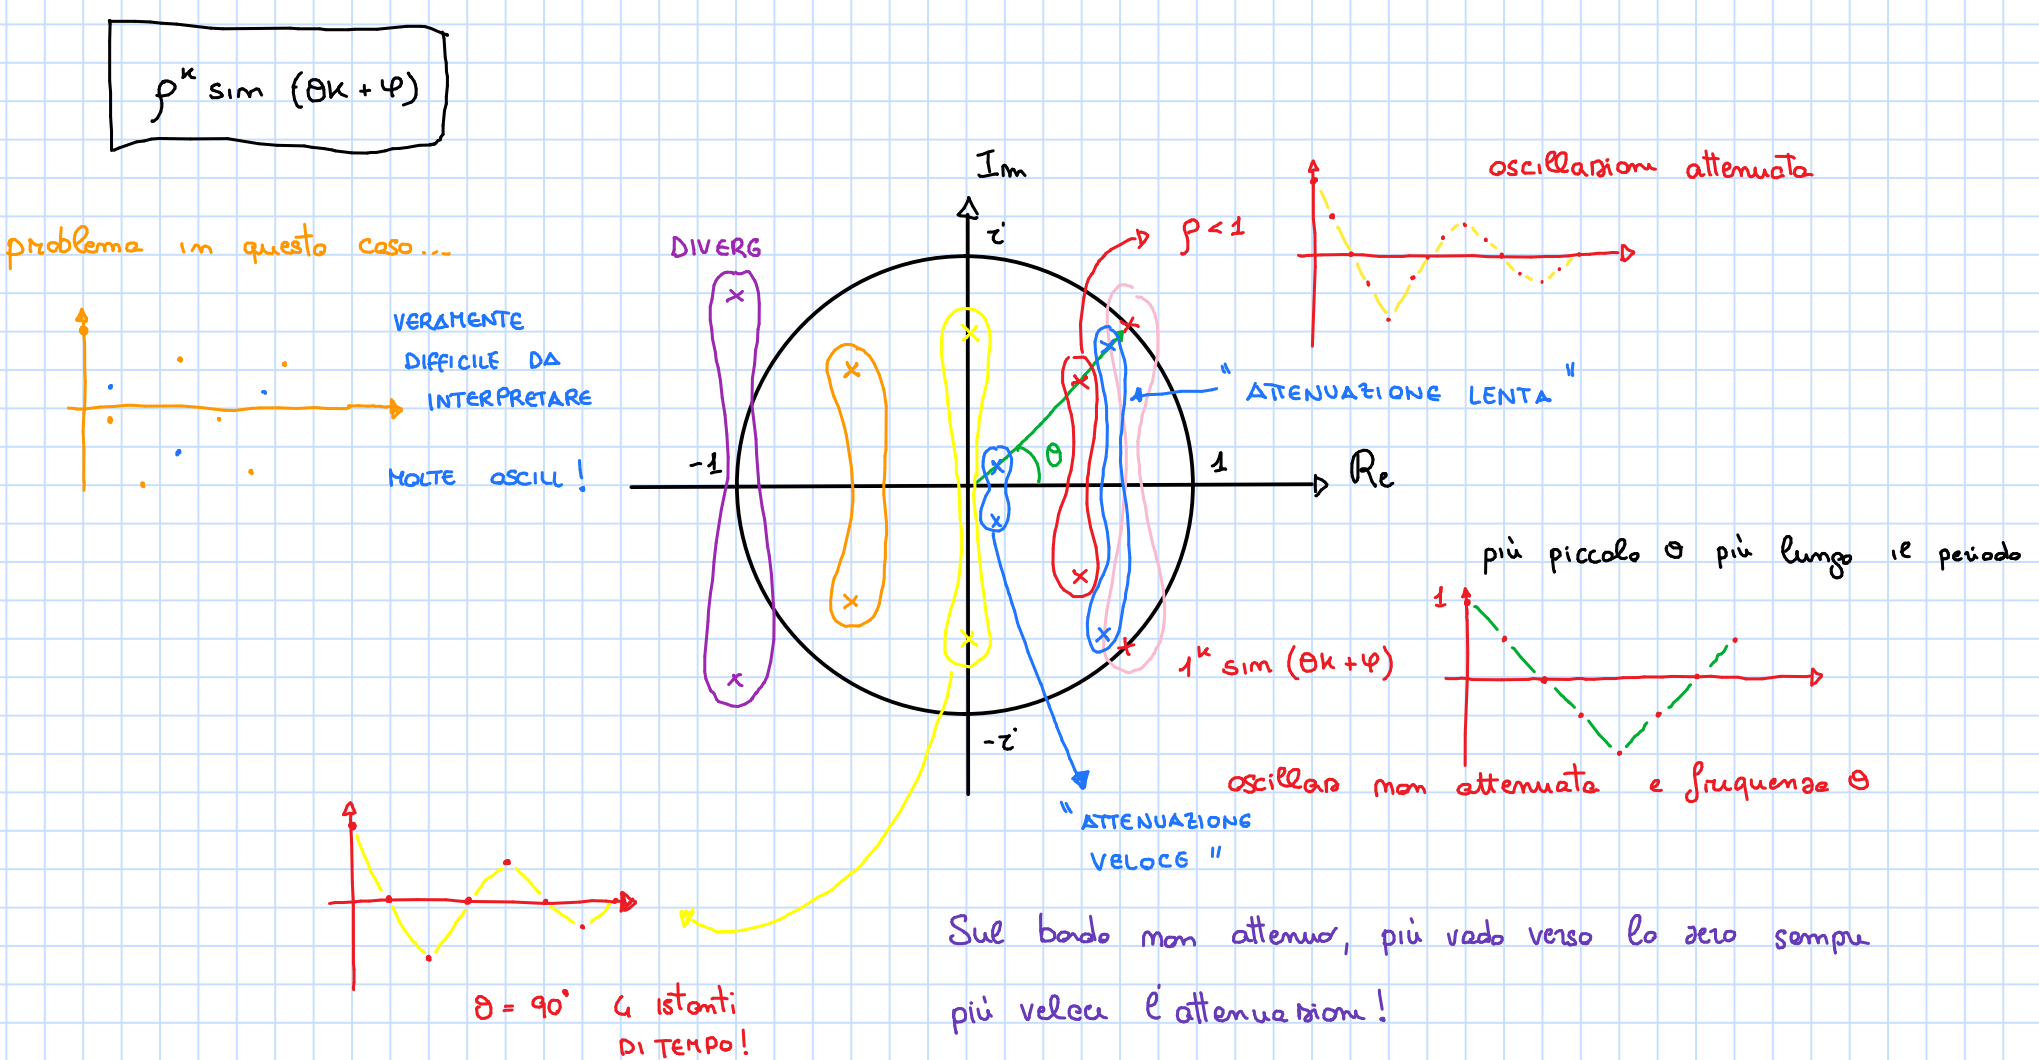 ρ^k sin (θk + φ)
problema in questo caso...
VERAMENTE
DIFFICILE DA
INTERPRETARE
MOLTE OSCILL!
DIVERG
Im
i
ρ < 1
oscillazione attenuata
" ATTENUAZIONE LENTA "
θ
-1
1
Re
-i
1^k sin (θk + φ)
più piccolo θ più lungo il periodo
1
oscillaz non attenuata e frequenza θ
" ATTENUAZIONE
VELOCE "
θ = 90° 4 ISTANTI
DI TEMPO!
Sul bordo non attenuo, più vado verso lo zero sempre
più veloce l'attenuazione!